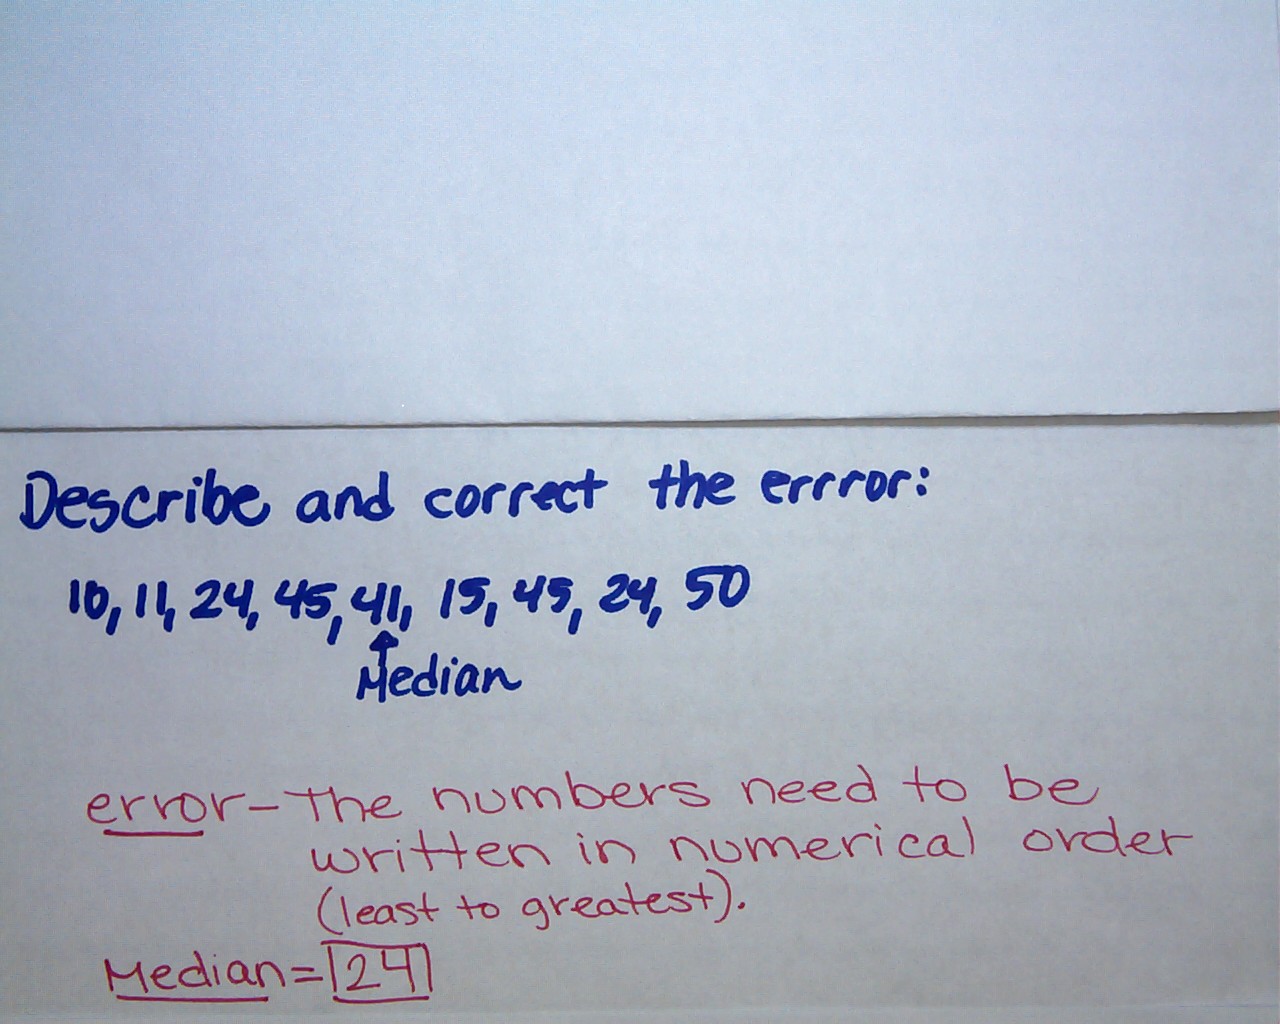 Describe and correct the errror:
10, 11, 24, 45, 41, 15, 45, 24, 50
Median
error - The numbers need to be
written in numerical order
(least to greatest).
Median = 24